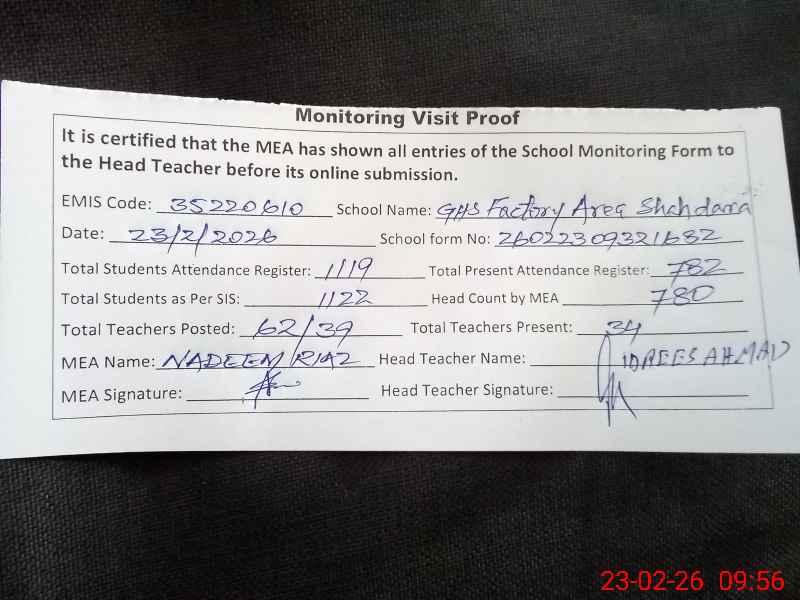 Monitoring Visit Proof
It is certified that the MEA has shown all entries of the School Monitoring Form to
the Head Teacher before its online submission.
EMIS Code: 35220610 School Name: GHS Factory Area Shahdara
Date: 23/2/2026 School form No: 26022309321682
Total Students Attendance Register: 1119 Total Present Attendance Register: 782
Total Students as Per SIS: 1122 Head Count by MEA 780
Total Teachers Posted: 62/39 Total Teachers Present: 34
MEA Name: NADEEM RIAZ Head Teacher Name: IDREES AHMAD
MEA Signature: Head Teacher Signature:
23-02-26 09:56